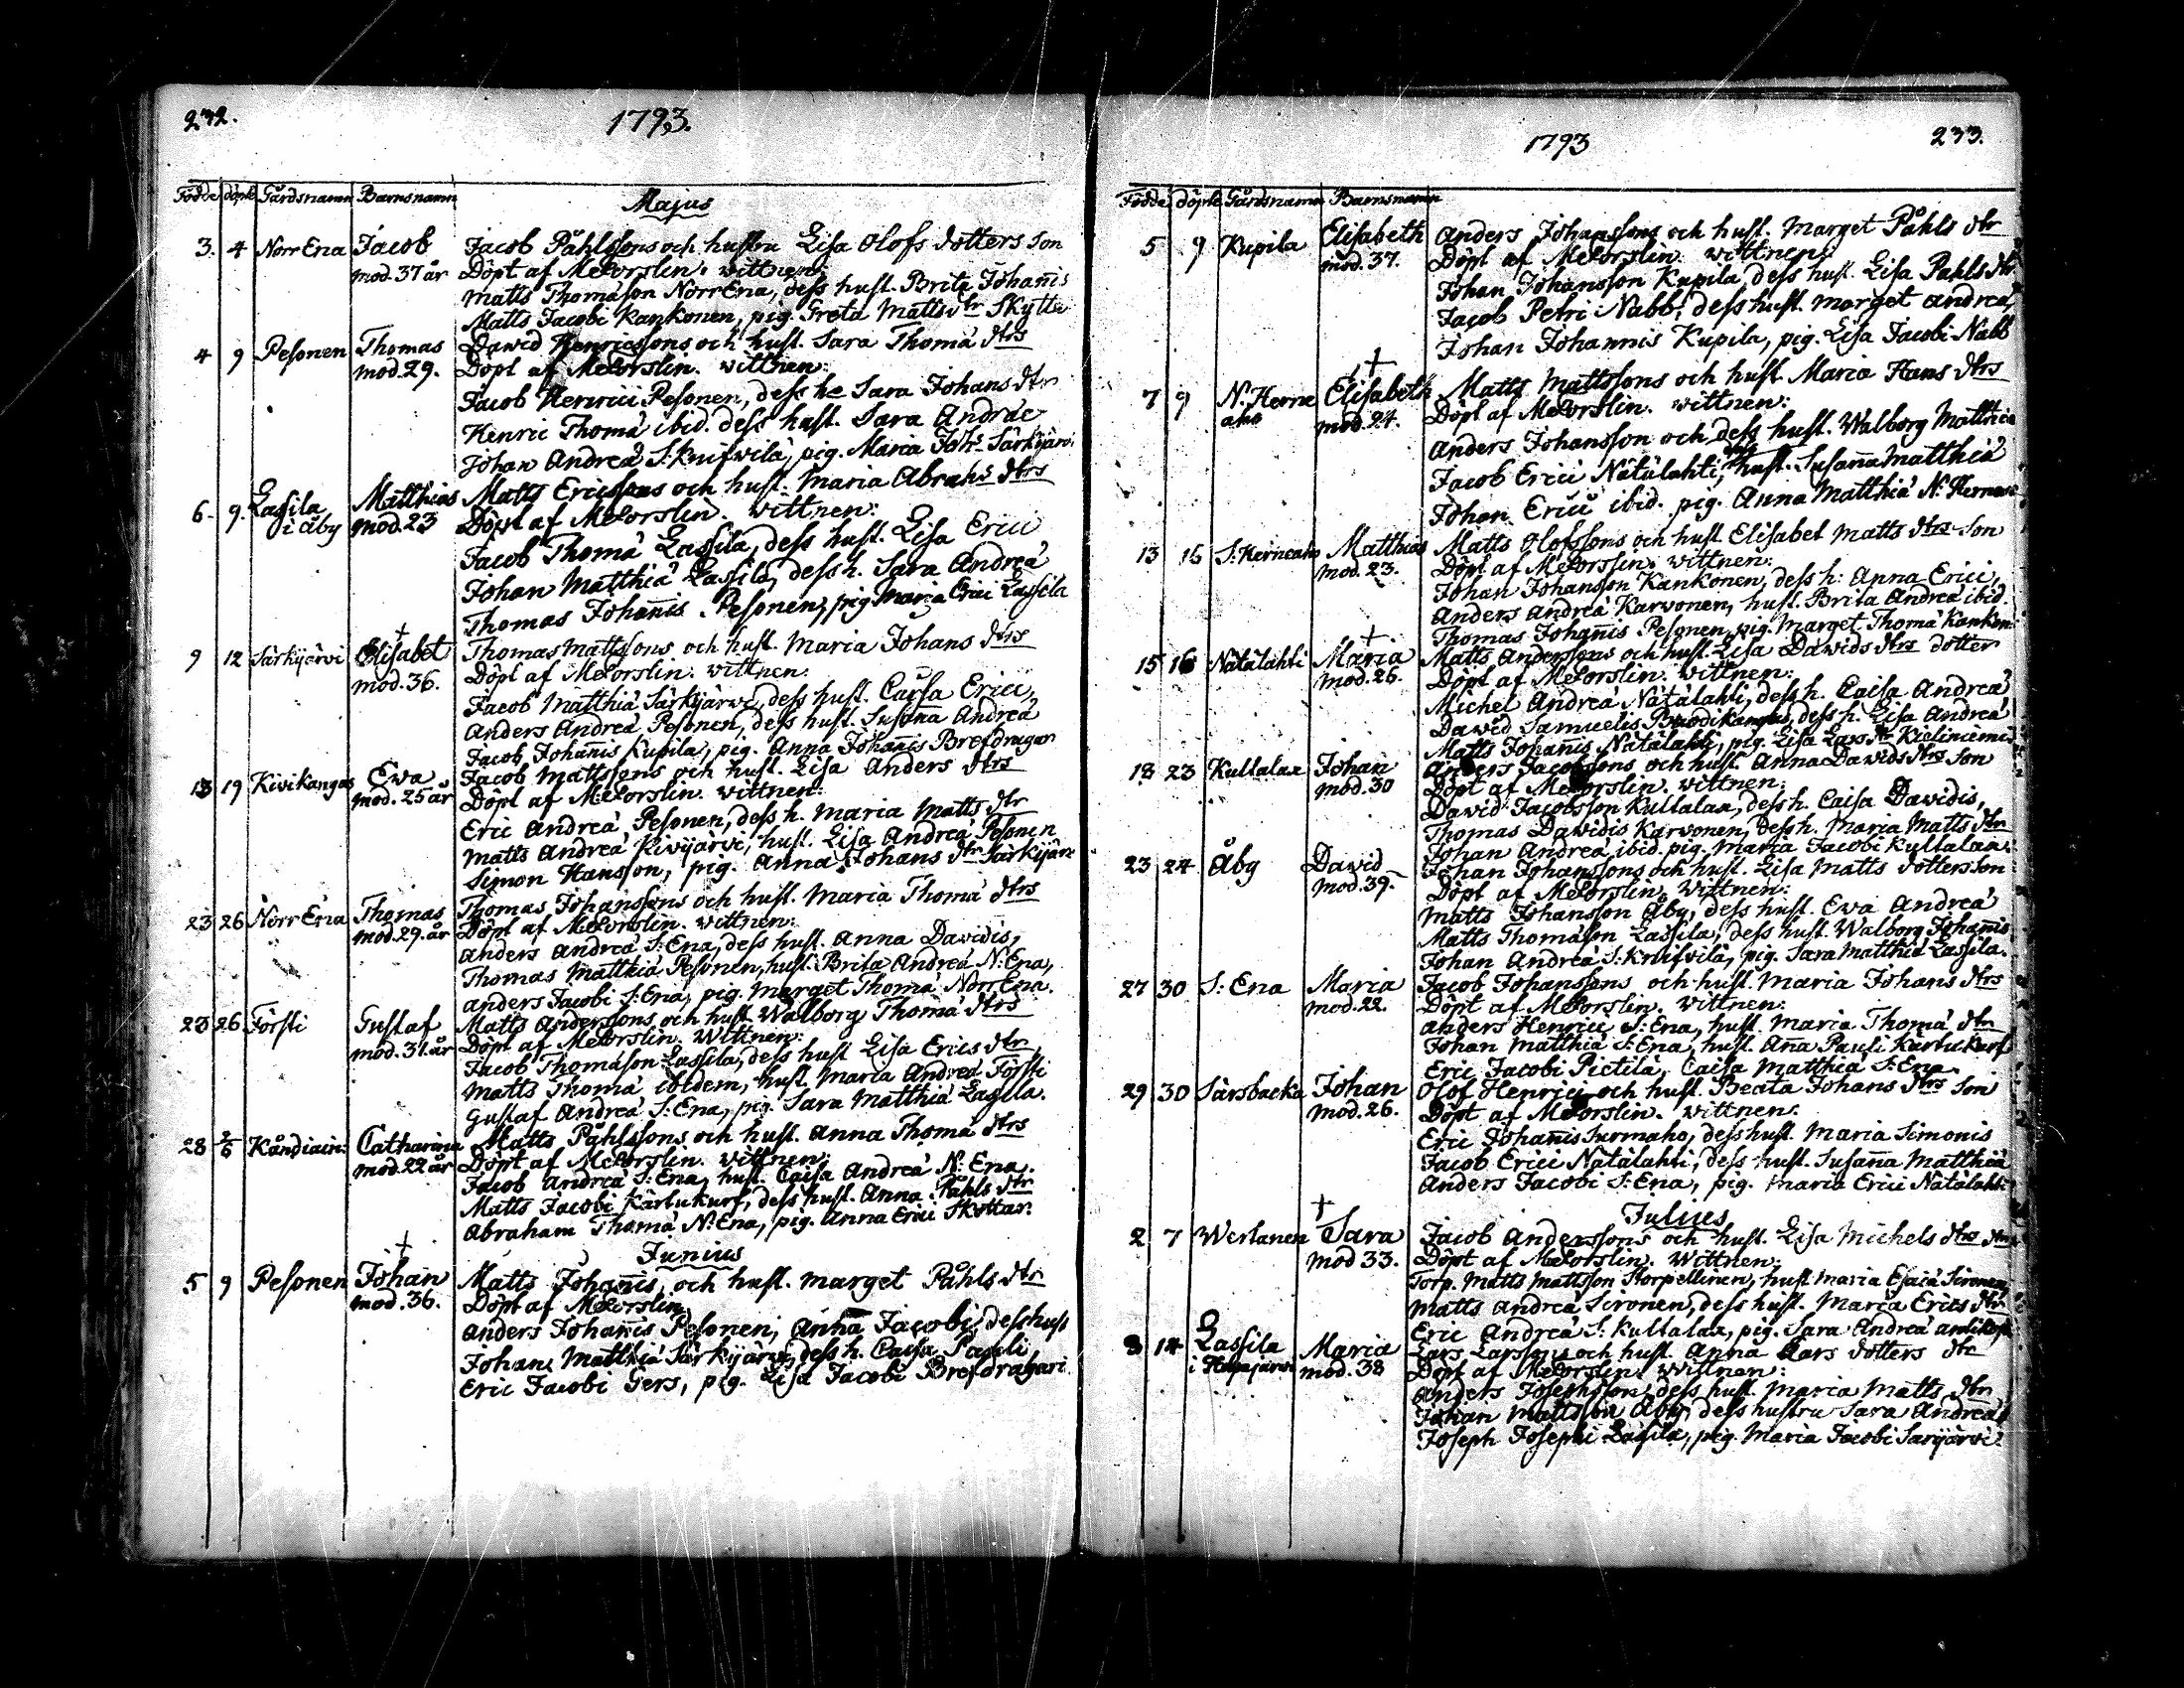 232.
1793.
Födde döpte Gårdsnamn Barnsnamn
Majus
3. 4 Norr Ena Jacob Jacob Påhlssons och hustru Lisa Olofs dotters son
mod. 37 år Döpt af McForslin. wittnen:
Matts Thomasson Norr Ena, dess hust. Brita Johan̄is
Matts Jacobi Kankonen, pig. Greta Matts dtr Skytte
4 9 Pesonen Thomas Dawid Henricssons och hust. Sara Thomæ dtrs
mod. 29. Döpt af McForslin. wittnen:
Jacob Henrici Pesonen, dess he Sara Johans dtr
Henric Thomæ ibid. dess hust. Sara Andræ
Johan Andreæ S: Knifvilä, pig. Maria Joh:s Särkijärvi
6. 9. Lassila Matthias Matts Ericssons och hust. Maria Abrahs dtrs
i åby mod. 23 Döpt af McForslin. wittnen:
Jacob Thomæ Lassila, dess hust. Lisa Erici
Johan Matthiæ Lassila, dess h. Sara Andreæ
Thomas Johan̄is Pesonen, pig Maria Erici Lassila
9 12 Särkijärvi † Elisabet Thomas Mattssons och hust. Maria Johans dtrs
mod. 36. Döpt af McForslin. wittnen:
Jacob Matthiæ Särkijärvi, dess hust. Caisa Erici,
Anders Andreæ Pesonen, dess hust. Susan̄a Andreæ
Jacob Johan̄is Kupila, pig. Anna Johan̄is Brefdragar
13 19 Kivikangas Ewa Jacob Mattssons och hust. Lisa Anders dtrs
mod. 25 år Döpt af McForslin. wittnen:
Eric Andreæ Pesonen, dess h. Maria Matts dtr
Matts Andreæ Kivijärvi, hust. Lisa Andreæ Pesonen
Simon Hansson, pig. Anna Johans dtr Särkijärv
23 26 Norr Ena Thomas Thomas Johanssons och hust. Maria Thomæ dtrs
mod. 29. år Döpt af McForslin. wittnen:
Anders Andreæ S: Ena, dess hust. Anna Davidis,
Thomas Matthiæ Pesonen, hust. Brita Andreæ N. Ena,
Anders Jacobi S: Ena, pig. Marget Thomæ Norr Ena.
23 26 Försti Gustaf Matts Anderssons och hust Walborg Thomæ dtrs
mod. 31. år Döpt af McForslin. Wittnen:
Jacob Thomasson Lassila, dess hust Lisa Erics dtr,
Matts Thomæ ibidem, hust. Maria Andreæ Försti
Gustaf Andreæ S: Ena, pig. Sara Matthiæ Lassila.
28 2/6 Catharina Matts Påhlssons och hust. Anna Thomæ dtrs
mod. 22 år Döpt af McForslin. wittnen:
Jacob Andreæ S: Ena, hust. Caisa Andreæ N: Ena,
Matts Jacobi Karlukurf, dess hust. Anna Påhls dtr
Abraham Thomæ N: Ena, pig. Anna Erici Skyttar.
Junius
5 9 Pesonen † Johan Matts Johan̄is, och hust. Marget Påhls dtr
mod. 36. Döpt af McForslin
Anders Johan̄is Pesonen, Anna Jacobi dess hust
Johan Matthiæ Särkijärvi, dess h. Caisa Pauli
Eric Jacobi Gers, pig. Lisa Jacobi Brefdragari
1793
233.
Födde döpte Gårdsnamn Barnsnamn
5 9 Kupila Elisabeth Anders Johanssons och hust. Marget Påhls dtr
mod. 37. Döpt af McForslin. wittnen:
Johan Johansson Kupila, dess hust. Lisa Pahls dtr
Jacob Petri Nabb, dess hust. Marget Andreæ
Johan Johannis Kupila, pig. Lisa Jacobi Nabb
7 9 N: Herne † Elisabeth Matts Mattssons och hust. Maria Hans dtrs
aho mod. 24. Döpt af McForslin. wittnen:
Anders Johansson och dess hust. Walborg Matthiæ
Jacob Erici Nätälahti, dess hust. Susan̄a Matthiæ
Johan Erici ibid. pig. Anna Matthiæ N: Herneaho
13 16 S: Herneaho Matthias Matts Olofssons och hust Elisabet Matts dtrs son
mod. 23. Döpt af McForslin. wittnen:
Johan Johansson Kankonen, dess h: Anna Erici,
Anders Andreæ Karvonen, hust. Brita Andreæ ibid.
Thomas Johan̄is Pesonen, pig. Marget Thomæ Kankon:
15 16 Nätälahti † Maria Matts Anderssons och hust. Lisa Dawids dtrs dotter
mod. 26. Döpt af McForslin. wittnen:
Michel Andreæ Nätälahti, dess h. Caisa Andreæ
Dawid Samuelis, dess h. Lisa Andreæ
Matts Johan̄is Nätälahti, pig. Lisa Lars dtr Kieliniemi
18 23 Kullalax Johan Anders Jacobssons och hust Anna Dawids dtrs son
mod. 30 Döpt af McForslin. wittnen:
Dawid Jacobsson Kullalax, dess h. Caisa Dawidis,
Thomas Dawidis Karvonen, dess h. Maria Matts dtr
Johan Andreæ ibid. pig. Maria Jacobi Kullalax
23 24 Åby David Johan Johanssons och hust. Lisa Matts dotters son
mod. 39. Döpt af McForslin. wittnen:
Matts Johansson Åby, dess hust. Ewa Andreæ
Matts Thomasson Lassila, dess hust. Walborg Johan̄is
Johan Andreæ S: Knifvilä, pig. Sara Matthiæ Lassila.
27 30 S: Ena Maria Jacob Johanssons och hust. Maria Johans dtrs
mod. 22. Döpt af McForslin. wittnen:
Anders Henrici S: Ena, hust. Maria Thomæ dtr
Johan Matthiæ S: Ena, hust. An̄a Pauli Karlukurf
Eric Jacobi Pietilä, Caisa Matthiæ S: Ena.
29 30 Särsbacka Johan Olof Henrici och hust. Beata Johans dtrs son
mod. 26. Döpt af McForslin. wittnen:
Eric Johan̄is Surmaho, dess hust. Maria Simonis
Jacob Erici Nätälahti, dess hust. Susan̄a Matthiæ
Anders Jacobi S: Ena, pig. Maria Erici Nätälahti
Julius
2 7 Werlanen † Sara Jacob Anderssons och hust. Lisa Michels dtrs dtr
mod 33. Döpt af McForslin. Wittnen:
Torp. Matts Mattsson Storpellinen, hust Maria Esaiæ Sironen,
Matts Andreæ Sironen, dess hust. Maria Erics dtr
Eric Andreæ S: Kullalax, pig. Sara Andreæ
8 14 Lassila Maria Lars Larssons och hust. Anna Lars dotters dtr
i mod. 38 Döpt af McForslin. Wittnen:
Anders Josephsson, dess hust. Maria Matts dtr
Johan Mattsson Åby, dess hustru Sara Andreæ
Joseph Josephi Lassila, pig. Maria Jacobi Sarijärvi